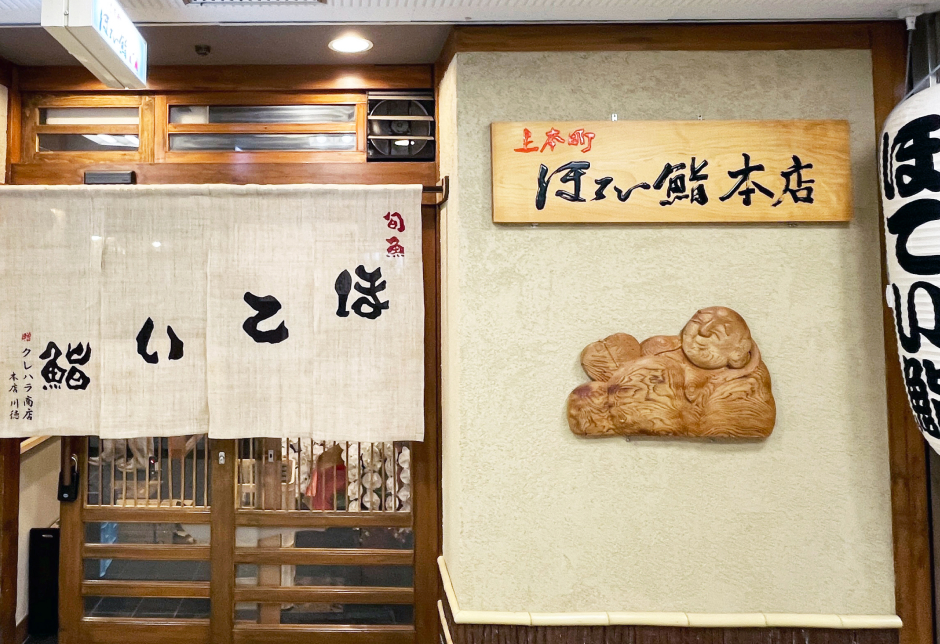 上本町
ほてい鮨本店
旬魚
ほてい鮨
贈
クレハラ商店
本店 川徳
ほてい鮨